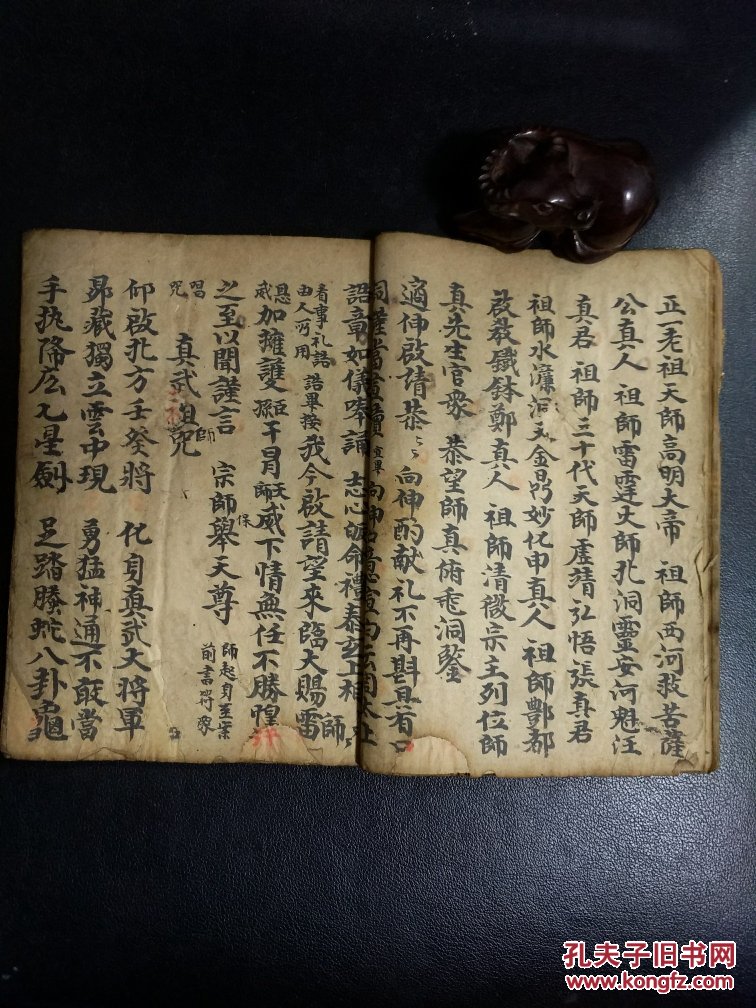 正一老祖天師高明大帝 祖師西河救苦薩
公真人 祖師雷霆大師孔洞靈安河魁汪
真君 祖師三十代天師虛靖弘悟張真君
祖師水濂洞 金昂妙化申真人 祖師酆都
啟教鐵鉢鄭真人 祖師清微宗主列位師
真先生官衆 恭望師真俯垂洞鋻
適伸啟請恭 向伸酌献礼不再斟具有
誥章如儀奉誦 志心皈命禮
看事礼誥
由人所用 誥畢接 我今啟請望來臨大賜雷
恩
威 加擁護 臣 干冒 天 威下情無任不勝惶
之至以聞謹言 宗師舉天尊 師起身至案
前書符篆
唱
咒 真武祖師咒
仰啟北方壬癸將 化身真武大將軍
昴藏獨立雲中現 勇猛神通不敢當
手执降広七星劍 足踏螣蛇八卦龜
孔夫子旧书网
www.kongfz.com